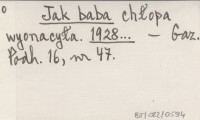 o
Jak baba chłopa
wyonacyła. 1928... – Gaz.
Podh. 16, nr 47.
BJ/022/0594